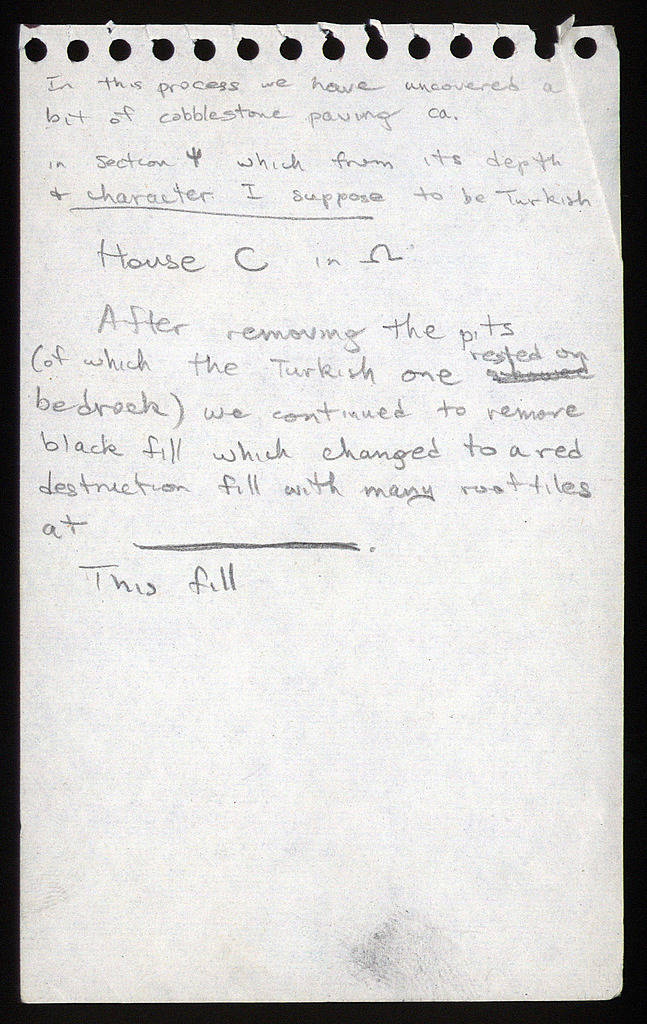 In this process we have uncovered a
bit of cobblestone paving ca.
in section Ψ which from its depth
+ character I suppose to be Turkish
House C in Ω
After removing the pits
(of which the Turkish one rested on
bedrock) we continued to remove
black fill which changed to a red
destruction fill with many rooftiles
at ________.
This fill